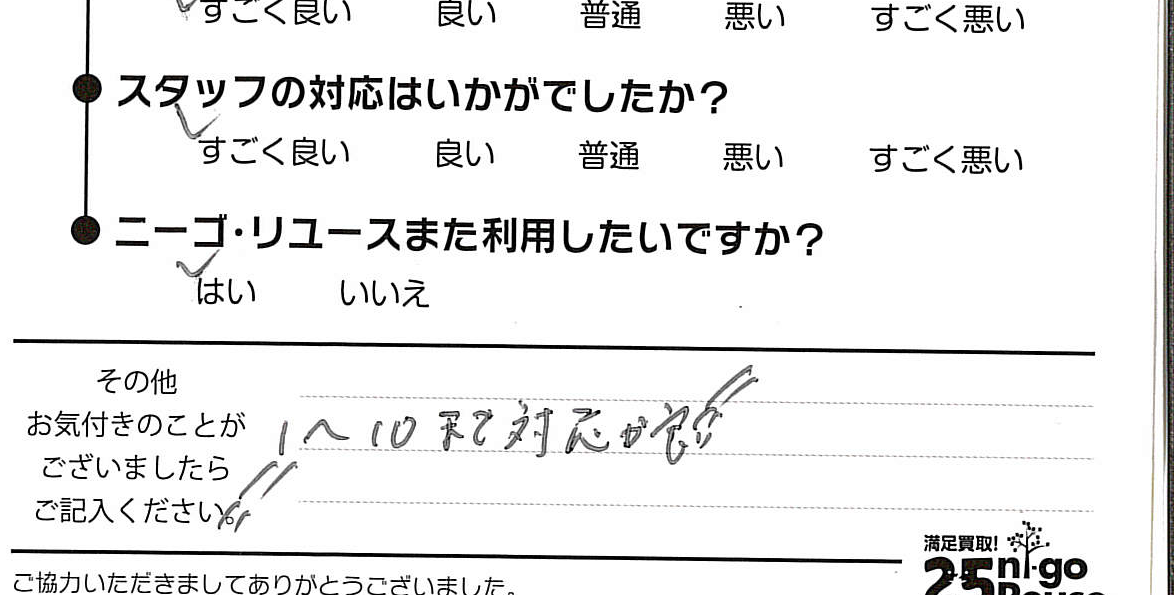 すごく良い 良い 普通 悪い すごく悪い
スタッフの対応はいかがでしたか?
すごく良い 良い 普通 悪い すごく悪い
ニーゴ・リユースまた利用したいですか?
はい いいえ
その他
お気付きのことが
ございましたら
ご記入ください。
1〜10まで対応が良い!!
満足買取!
25 ni-go
Reuse
ご協力いただきましてありがとうございました。